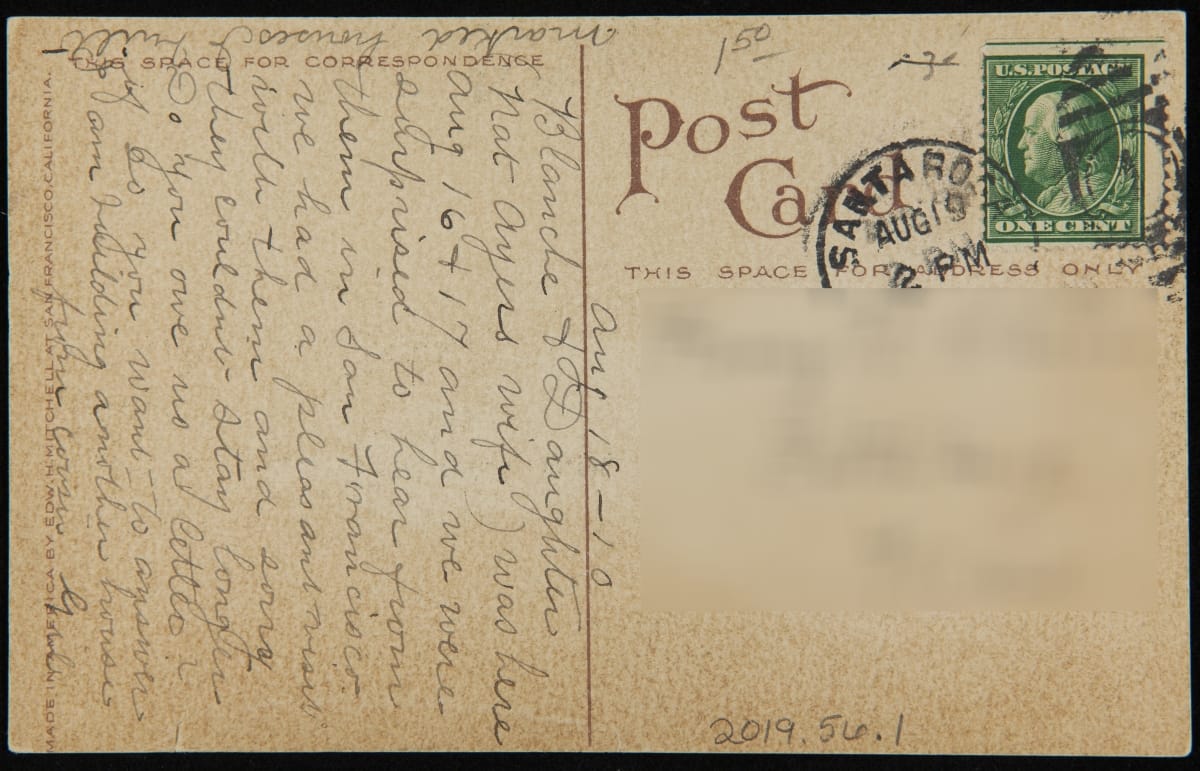 THIS SPACE FOR CORRESPONDENCE
150
Post
Card
U.S. POSTAGE
ONE CENT
SANTA RO
AUG 19
2 PM
THIS SPACE FOR ADDRESS ONLY
Aug 18-10
Blanche & Daughter
Nat Ayers wife) was here
Aug 16 & 17 and we were
surprised to hear from
them in San Francisco
we had a pleasant visit
with them and sorry
they couldnt stay longer
Do you owe us a letter
if so you want to answer
I am building another house
your cousin
marked houses
MADE IN AMERICA BY EDW. H. MITCHELL AT SAN FRANCISCO, CALIFORNIA.
2019.56.1